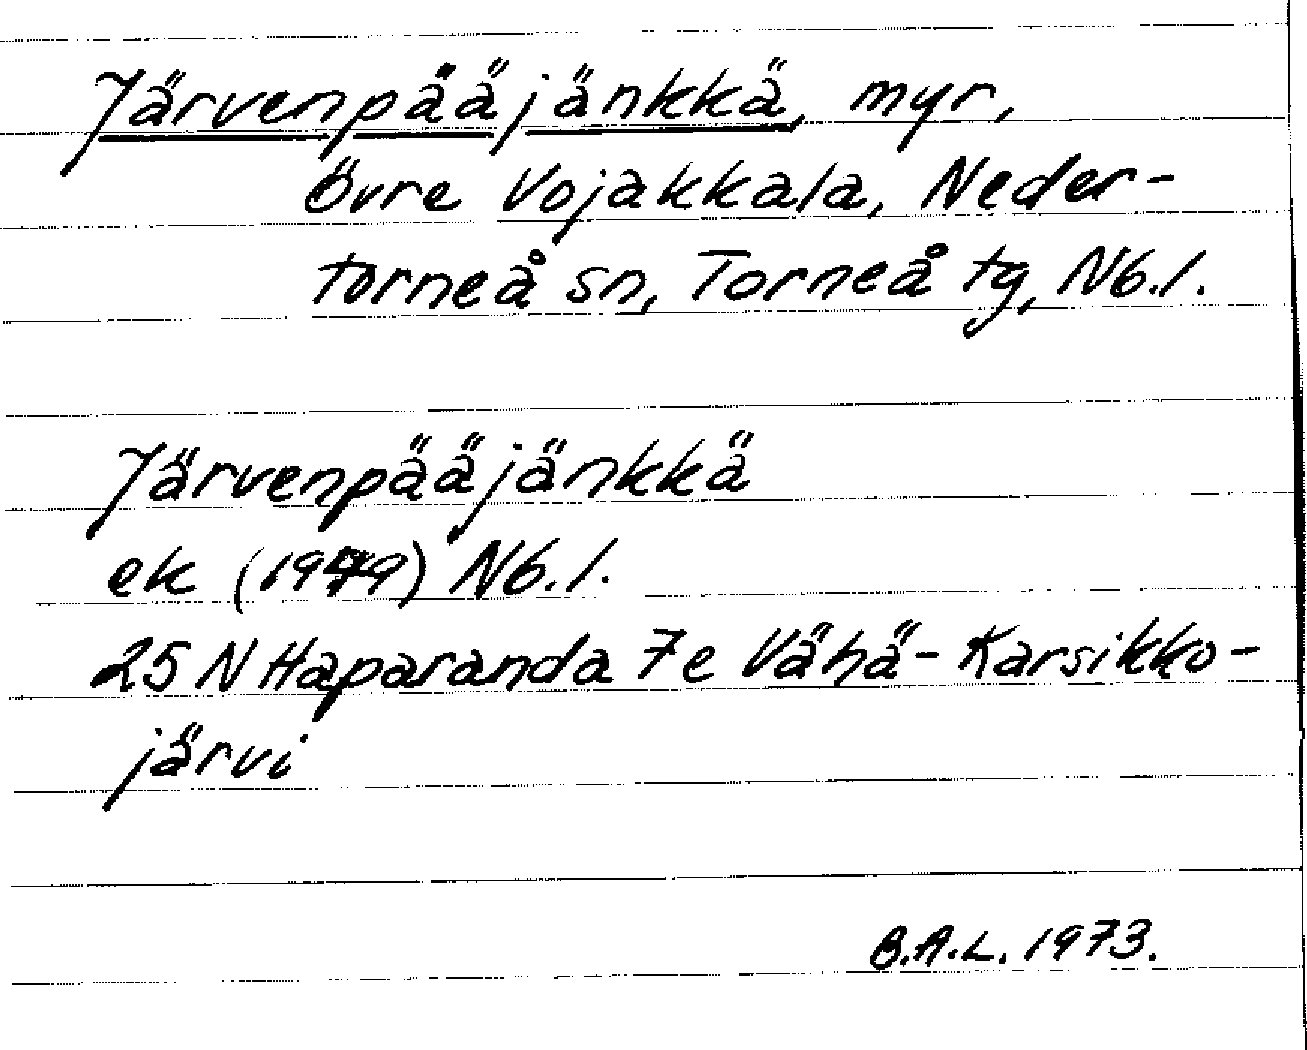 Järvenpääjänkkä, myr,
Övre Vojakkala, Neder-
torneå sn, Torneå tg, Nb.l.
Järvenpääjänkkä
ek (1949) Nb.l.
25 N Haparanda 7e Vähä-Karsikko-
järvi
B.A.L. 1973.